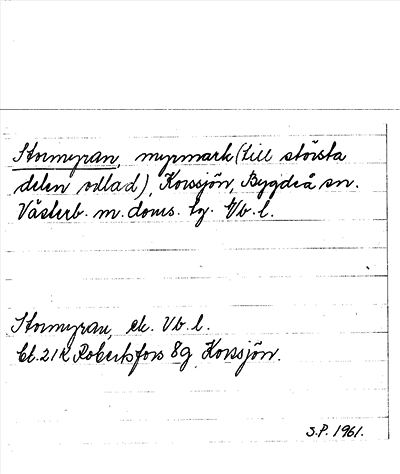 Stormyran, myrmark (till största
delen odlad), Korssjön, Bygdeå sn.
Västerb. m. doms. tg. Vb. l.
Stormyran, ek. Vb. l.
bl. 21K Robertsfors 8g Korssjön.
S.P. 1961.